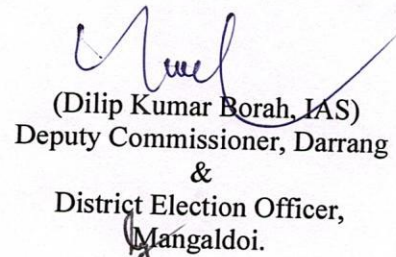 (Dilip Kumar Borah, IAS)
Deputy Commissioner, Darrang
&
District Election Officer,
Mangaldoi.